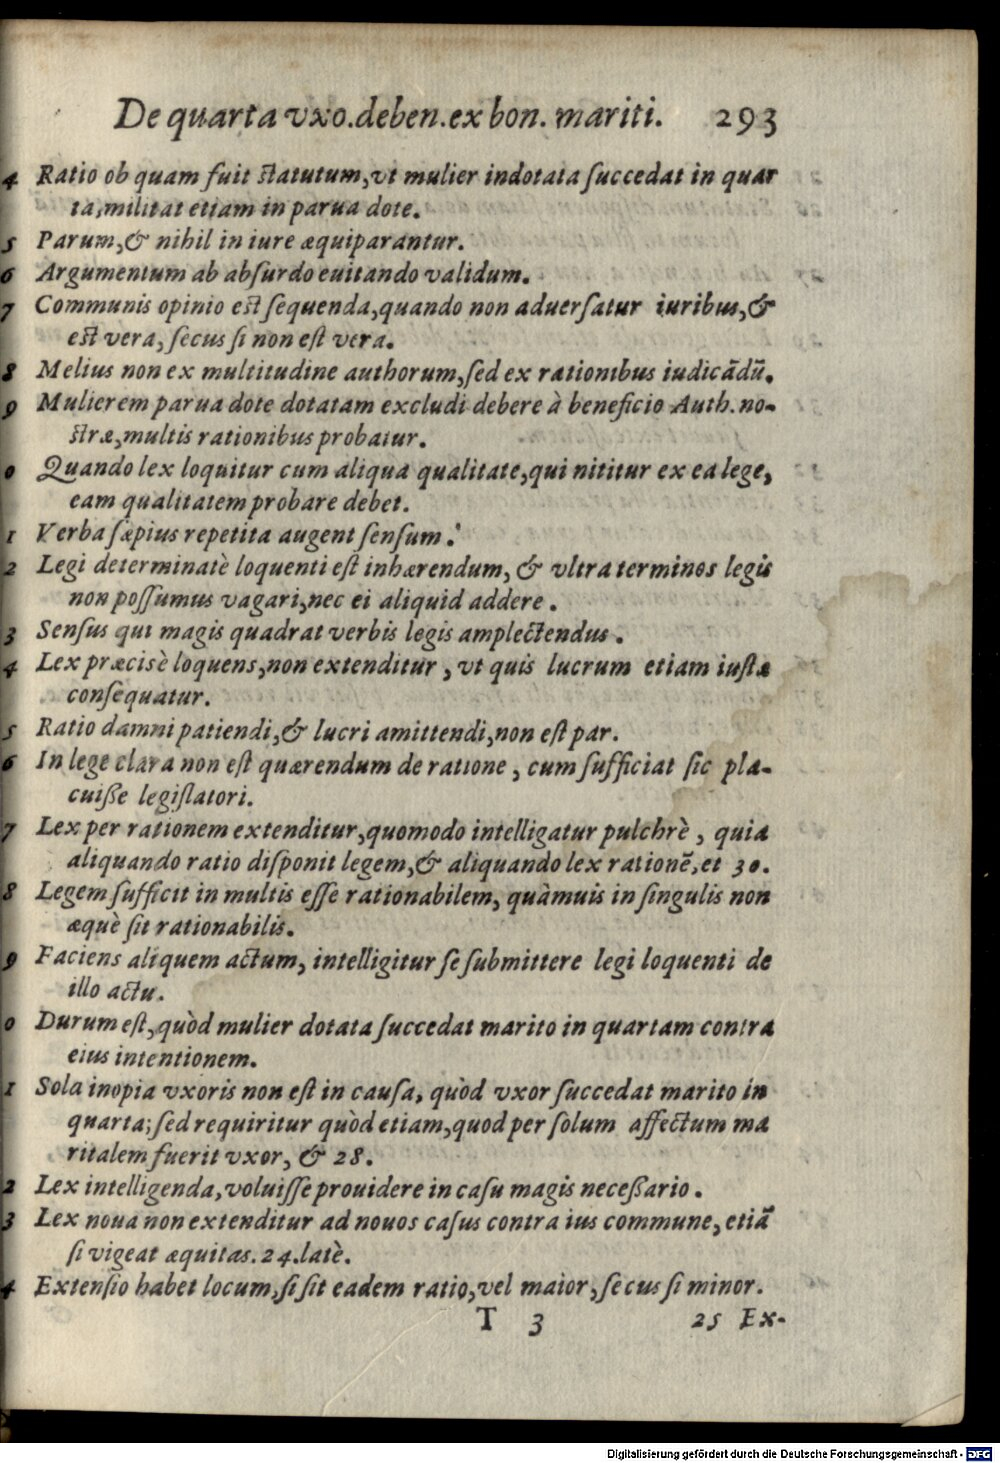 De quarta vxo.deben.ex bon. mariti. 293
4 Ratio ob quam fuit ſtatutum,vt mulier indotata ſuccedat in quar
ta,militat etiam in parua dote.
5 Parum,& nihil in iure æquiparantur.
6 Argumentum ab abſurdo euitando validum.
7 Communis opinio eſt ſequenda,quando non aduerſatur iuribus,&
eſt vera, ſecus ſi non eſt vera.
8 Melius non ex multitudine authorum,ſed ex rationibus iudicãdũ.
9 Mulierem parua dote dotatam excludi debere à beneficio Auth.no-
ſtræ,multis rationibus probatur.
0 Quando lex loquitur cum aliqua qualitate,qui nititur ex ea lege,
eam qualitatem probare debet.
1 Verba ſæpius repetita augent ſenſum.
2 Legi determinatè loquenti eſt inhærendum, & vltra terminos legis
non poſſumus vagari,nec ei aliquid addere.
3 Senſus qui magis quadrat verbis legis amplectendus.
4 Lex præcisè loquens,non extenditur, vt quis lucrum etiam iuſtæ
conſequatur.
5 Ratio damni patiendi,& lucri amittendi,non eſt par.
6 In lege clara non eſt quærendum de ratione, cum ſufficiat ſic pla-
cuiſſe legiſlatori.
7 Lex per rationem extenditur,quomodo intelligatur pulchrè, quia
aliquando ratio diſponit legem,& aliquando lex rationẽ,et 30.
8 Legem ſufficit in multis eſſe rationabilem, quàmuis in ſingulis non
æquè ſit rationabilis.
9 Faciens aliquem actum, intelligitur ſe ſubmittere legi loquenti de
illo actu.
0 Durum eſt,quòd mulier dotata ſuccedat marito in quartam contra
eius intentionem.
1 Sola inopia vxoris non eſt in cauſa, quòd vxor ſuccedat marito in
quarta; ſed requiritur quòd etiam,quod per ſolum affectum ma
ritalem fuerit vxor, & 28.
2 Lex intelligenda,voluiſſe prouidere in caſu magis neceſſario.
3 Lex noua non extenditur ad nouos caſus contra ius commune, etiã
ſi vigeat æquitas.24.latè.
4 Extenſio habet locum,ſi ſit eadem ratio,vel maior, ſecus ſi minor.
T 3 25 Ex-
Digitalisierung gefördert durch die Deutsche Forschungsgemeinschaft - DFG